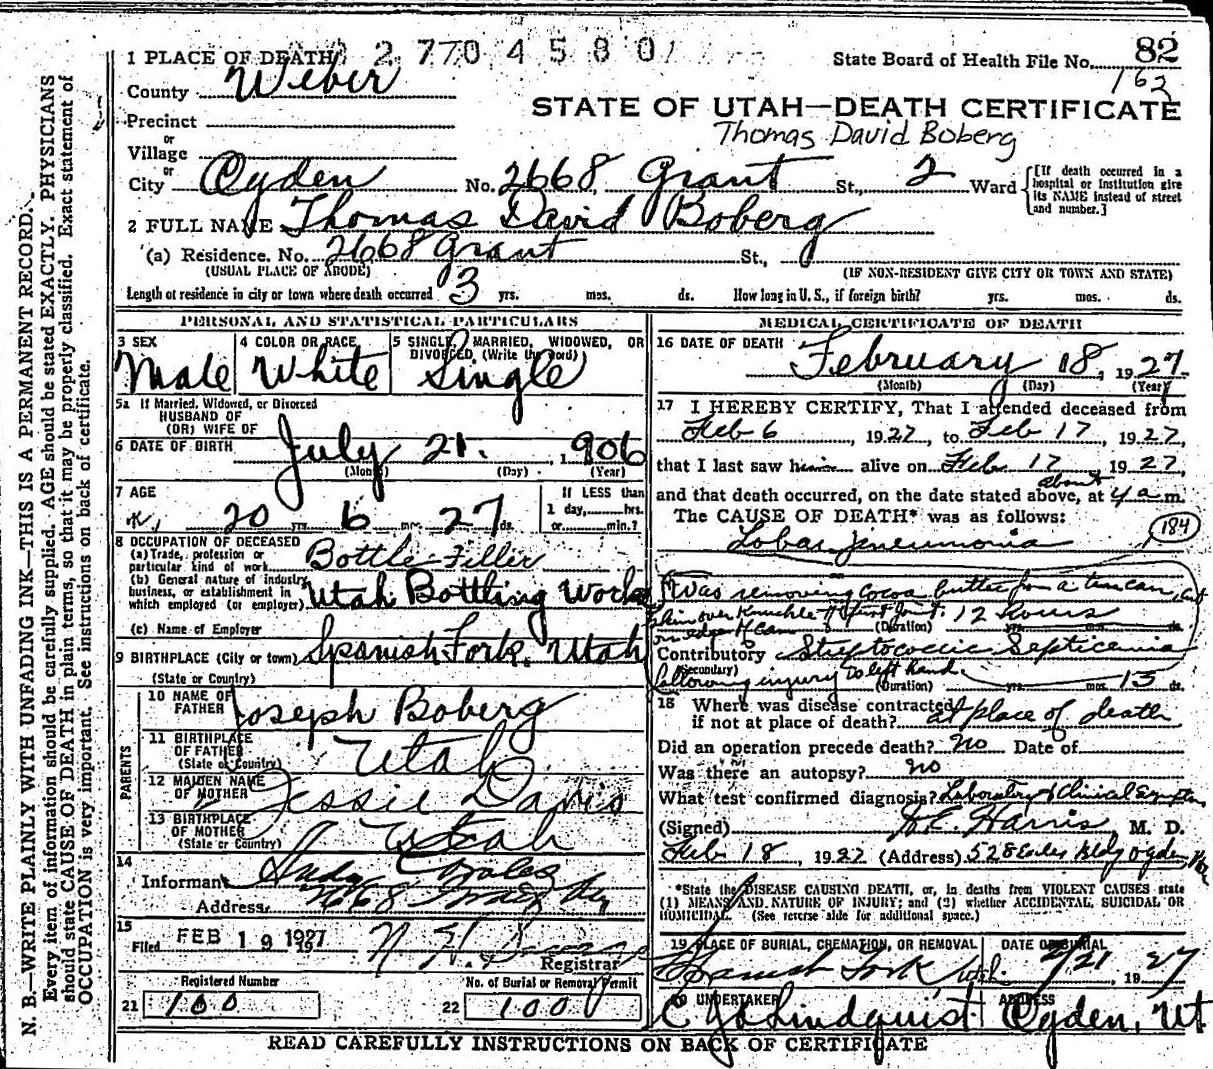 1 PLACE OF DEATH 2 7 7 0 4 5 8 0
State Board of Health File No. 82
162
County Weber
STATE OF UTAH—DEATH CERTIFICATE
Precinct
Thomas David Boberg
or
Village
or
City Ogden No. 2668 Grant St., 2 Ward
[If death occurred in a hospital or institution give its NAME instead of street and number.]
2 FULL NAME Thomas David Boberg
(a) Residence. No. 2668 Grant St.,
(USUAL PLACE OF ABODE) (IF NON-RESIDENT GIVE CITY OR TOWN AND STATE)
Length of residence in city or town where death occurred 3 yrs. mos. ds. How long in U. S., if foreign birth? yrs. mos. ds.
PERSONAL AND STATISTICAL PARTICULARS
3 SEX Male
4 COLOR OR RACE White
5 SINGLE, MARRIED, WIDOWED, OR DIVORCED, (Write the word) Single
5a If Married, Widowed, or Divorced
HUSBAND OF
(OR) WIFE OF
6 DATE OF BIRTH July 21. 1906
(Month) (Day) (Year)
7 AGE 20 yrs. 6 mos. 27 ds.
If LESS than
1 day, hrs.
or min.?
8 OCCUPATION OF DECEASED
(a) Trade, profession or
particular kind of work Bottle Filler
(b) General nature of industry,
business, or establishment in
which employed (or employer) Utah Bottling Works
(c) Name of Employer
9 BIRTHPLACE (City or town) Spanish Fork, Utah
(State or Country)
PARENTS
10 NAME OF
FATHER Joseph Boberg
11 BIRTHPLACE
OF FATHER
(State or Country) Utah
12 MAIDEN NAME
OF MOTHER Jessie Davis
13 BIRTHPLACE
OF MOTHER
(State or Country) Utah
14
Informant
Address 2668
15
Filed FEB 19 1927
Registrar
Registered Number
21 100
No. of Burial or Removal Permit
22 100
MEDICAL CERTIFICATE OF DEATH
16 DATE OF DEATH
February 18, 1927.
(Month) (Day) (Year)
17 I HEREBY CERTIFY, That I attended deceased from
Feb 6, 1927, to Feb 17, 1927,
that I last saw him alive on Feb 17, 1927,
about
and that death occurred, on the date stated above, at 4 a m.
The CAUSE OF DEATH* was as follows:
184
Lobar pneumonia
Was removing Cocoa butter from a tin can, Cut
skin over Knuckle of first joint. 12 hours
on edge of Can (Duration) yrs. mos. ds.
Contributory Streptococcic Septicemia
(Secondary)
following injury to left hand. (Duration) yrs. mos. 13 ds.
18 Where was disease contracted
if not at place of death? at place of death
Did an operation precede death? no Date of
Was there an autopsy? no
What test confirmed diagnosis? Laboratory & Clinical Symptoms
(Signed) Harris, M. D.
Feb 18, 1927 (Address) 528 Eccles Bldg Ogden,
*State the DISEASE CAUSING DEATH, or, in deaths from VIOLENT CAUSES state
(1) MEANS AND NATURE OF INJURY; and (2) whether ACCIDENTAL, SUICIDAL OR
HOMICIDAL. (See reverse side for additional space.)
19 PLACE OF BURIAL, CREMATION, OR REMOVAL DATE OF BURIAL
Spanish Fork Utah. 2/21, 1927
20 UNDERTAKER ADDRESS
Lindquist Ogden, Ut
READ CAREFULLY INSTRUCTIONS ON BACK OF CERTIFICATE
N. B.—WRITE PLAINLY WITH UNFADING INK—THIS IS A PERMANENT RECORD.
Every item of information should be carefully supplied. AGE should be stated EXACTLY. PHYSICIANS
should state CAUSE OF DEATH in plain terms, so that it may be properly classified. Exact statement of
OCCUPATION is very important. See instructions on back of certificate.